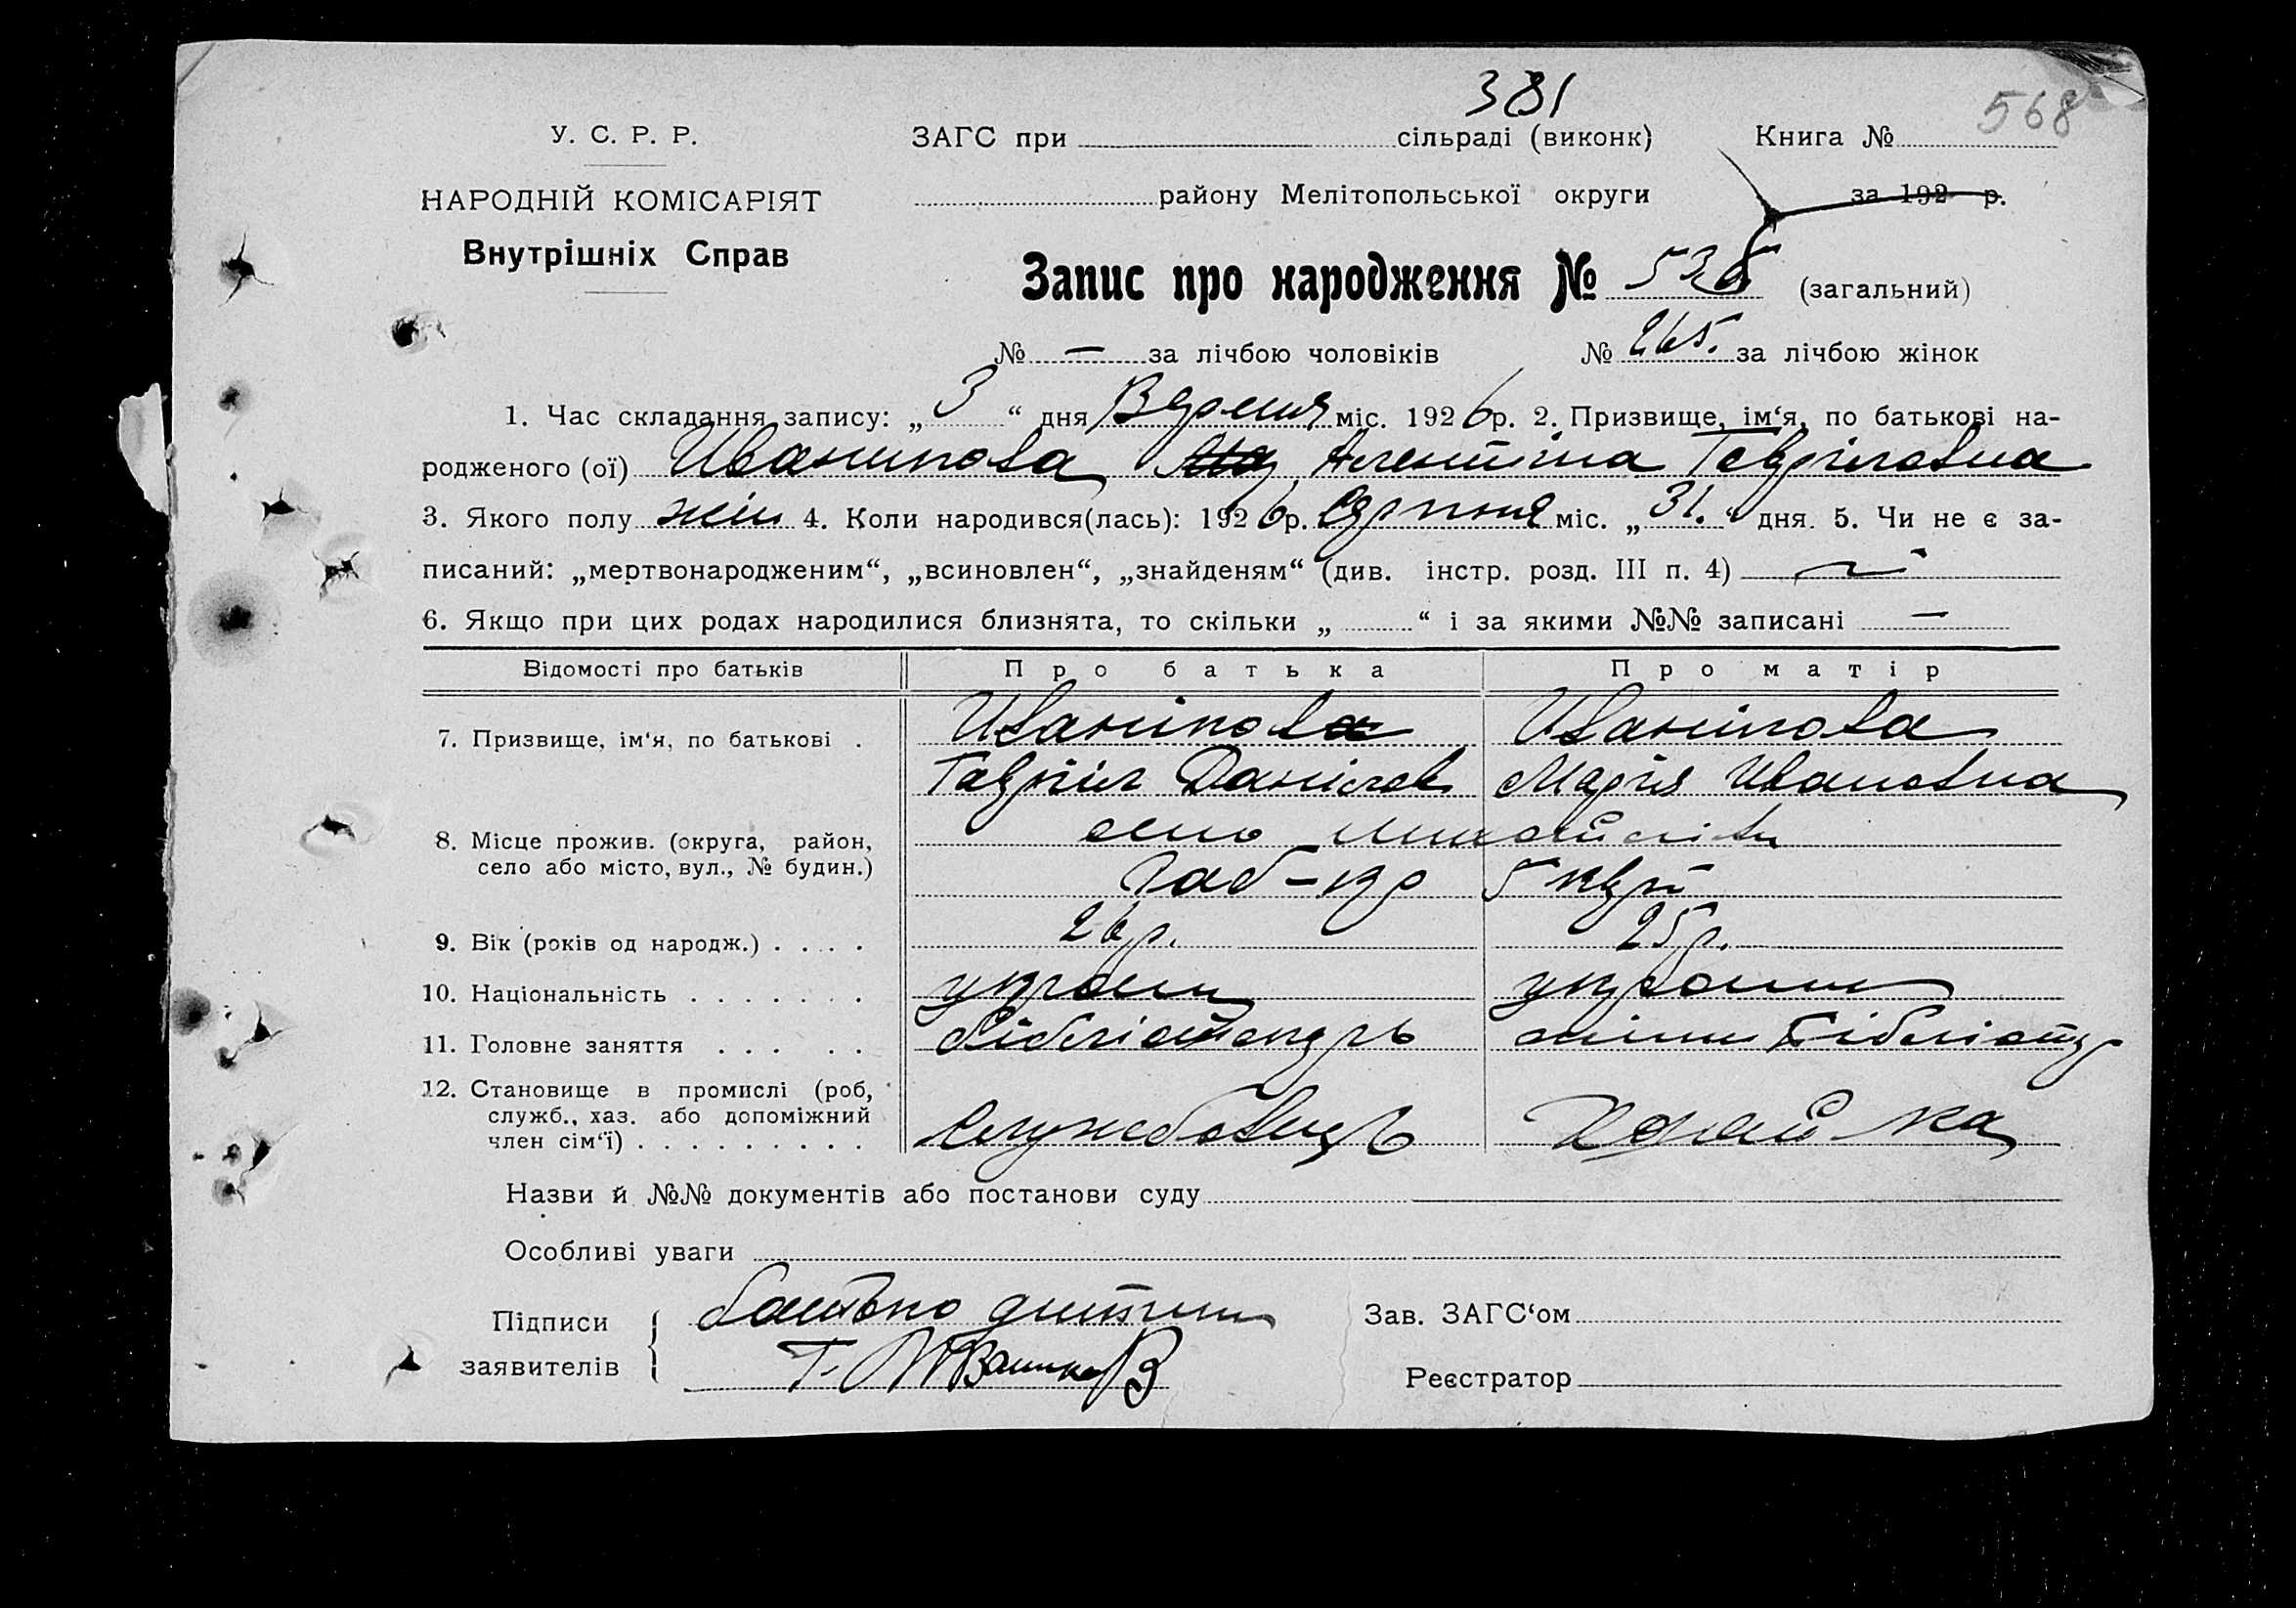 381
568
У. С. Р. Р.
ЗАГС при сільраді (виконк) Книга №
НАРОДНІЙ КОМІСАРІЯТ
району Мелітопольської округи за 192 р.
Внутрішніх Справ
Запис про народження № (загальний)
№ — за лічбою чоловіків № 265. за лічбою жінок
1. Час складання запису: „ 3 “ дня Вересня міс. 1926 р. 2. Призвище, ім‘я, по батькові на-
родженого (ої) Иванипова Гавріловна
3. Якого полу жін 4. Коли народився(лась): 1926 р. Серпня міс. „ 31. “ дня. 5. Чи не є за-
писаний: „мертвонародженим“, „всиновлен“, „знайденям“ (див. інстр. розд. III п. 4) ні
6. Якщо при цих родах народилися близнята, то скільки „ “ і за якими №№ записані —
Відомості про батьків Про батька Про матір
7. Призвище, ім‘я, по батькові . Иваніпова Иваніпова
Гавріїл Данілов Марія Ивановна
8. Місце прожив. (округа, район,
село або місто, вул., № будин.)
9. Вік (років од народж.) . . . . 26 р. 25 р.
10. Національність . . . . . . . україн україн
11. Головне заняття . . . . . бібліотекарь
12. Становище в промислі (роб,
служб., хаз. або допоміжний
член сім‘ї) . . . . . . . . . службовець
Назви й №№ документів або постанови суду
Особливі уваги
Підписи батько дитини Зав. ЗАГС‘ом
заявителів Реєстратор